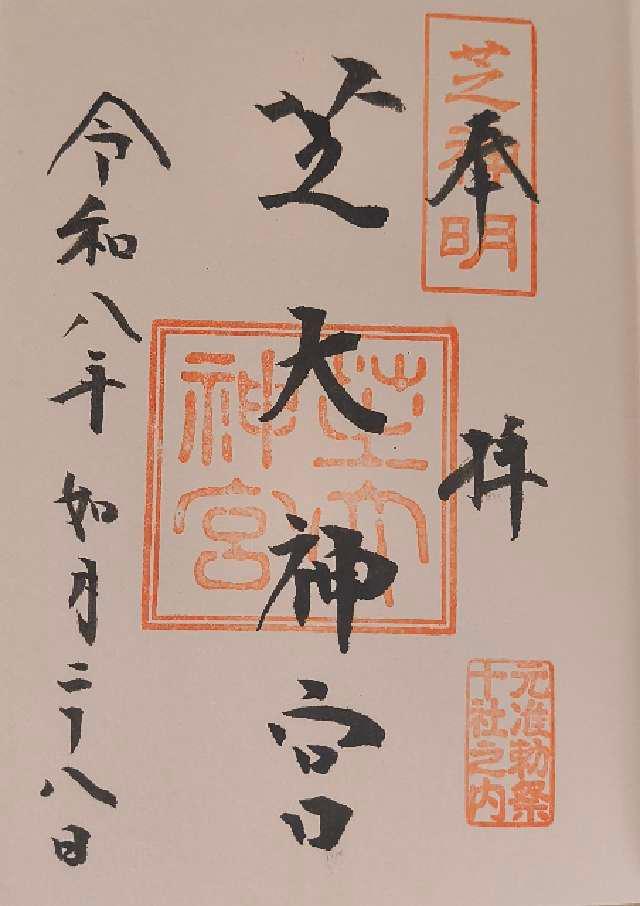 奉拝
芝神明
元准勅祭
十社之内
芝大神宮
芝大神宮
令和八年如月二十八日